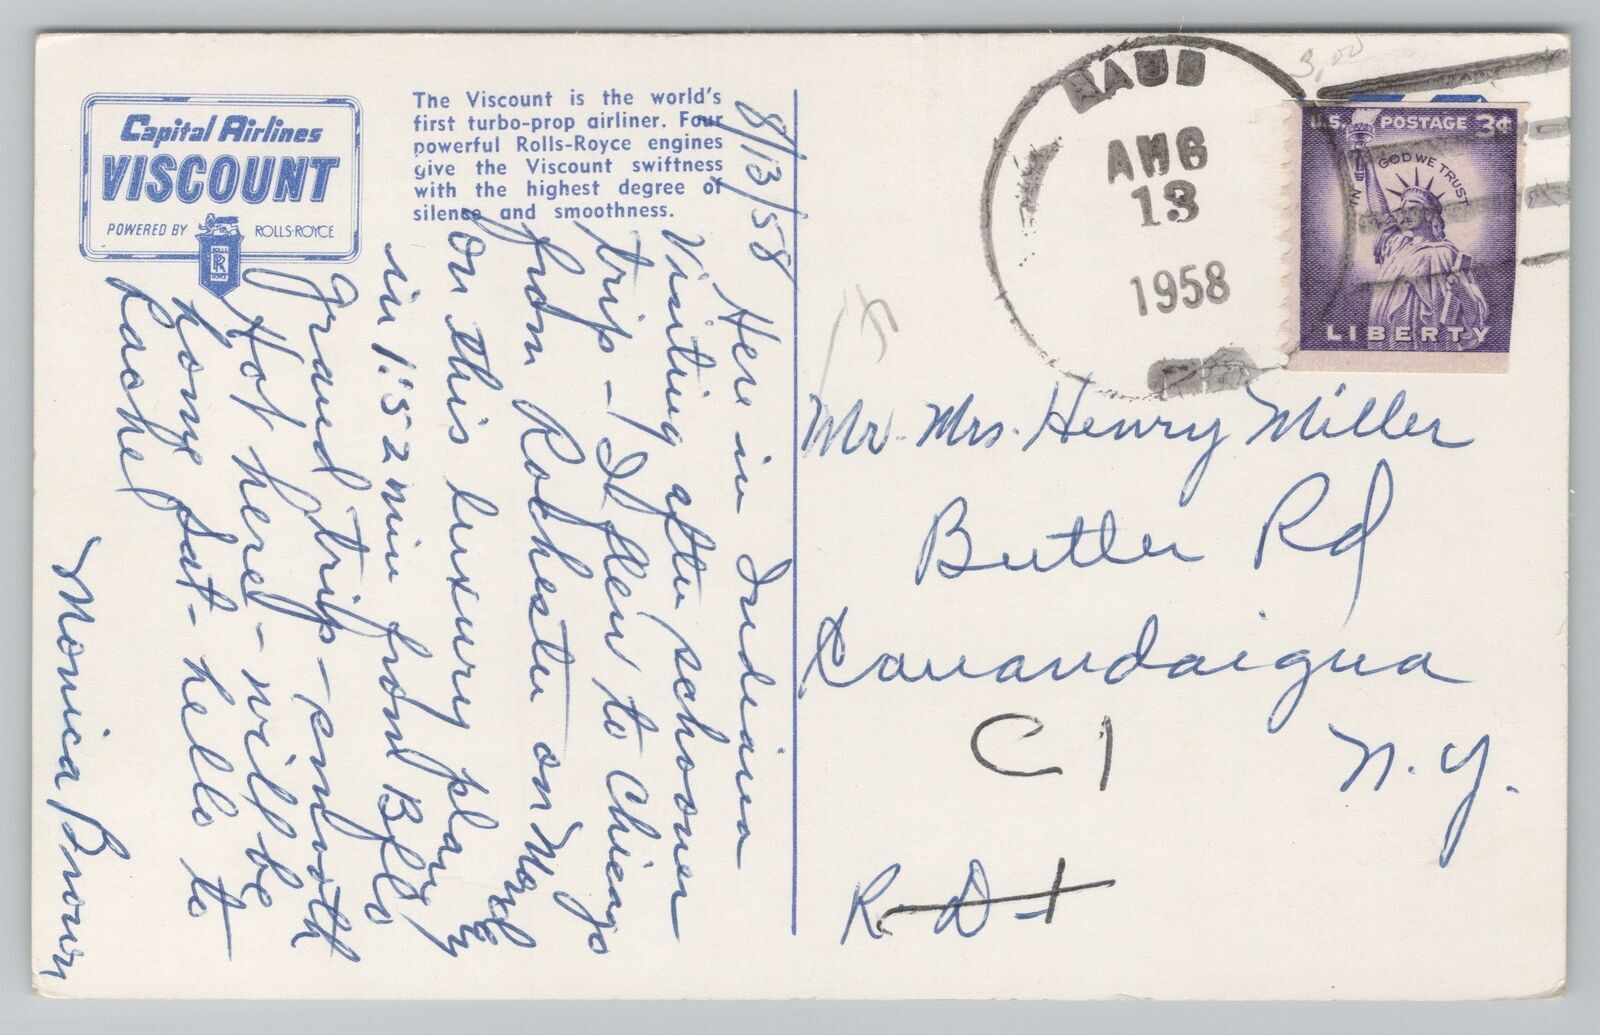 Capital Airlines
VISCOUNT
POWERED BY ROLLS-ROYCE
ROLLS
RR
ROYCE
The Viscount is the world's
first turbo-prop airliner. Four
powerful Rolls-Royce engines
give the Viscount swiftness
with the highest degree of
silence and smoothness.
8/13/58
Here in Indiana
visiting after schooner
trip - I flew to Chicago
from Rochester on Monday
on this luxury plane
in 1:52 min from Bflo
Grand trip - smooth
Hot here - will be
home Sat - hello to
Monica Brown
AUG
13
1958
3.00
U.S. POSTAGE 3¢
IN GOD WE TRUST
LIBERTY
Mr. Mrs. Henry Miller
Butler Rd
Canandaigua
C1
N.Y.
R. D 1